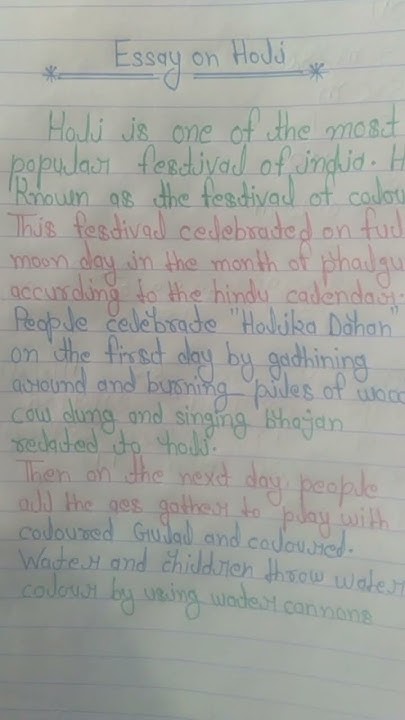 Essay on Holi
Holi is one of the most
popular festival of india. H
Known as the festival of colou
This festival celebrated on full
moon day in the month of phalgu
accurding to the hindu calendar.
People celebrate "Holika Dahan"
on the first day by gathining
around and burning piles of wood
cow dung and singing bhajan
related to holi.
Then on the next day people
all the ges gather to play with
coloured Gulal and coloured.
Water and children throw water
colour by using water cannons